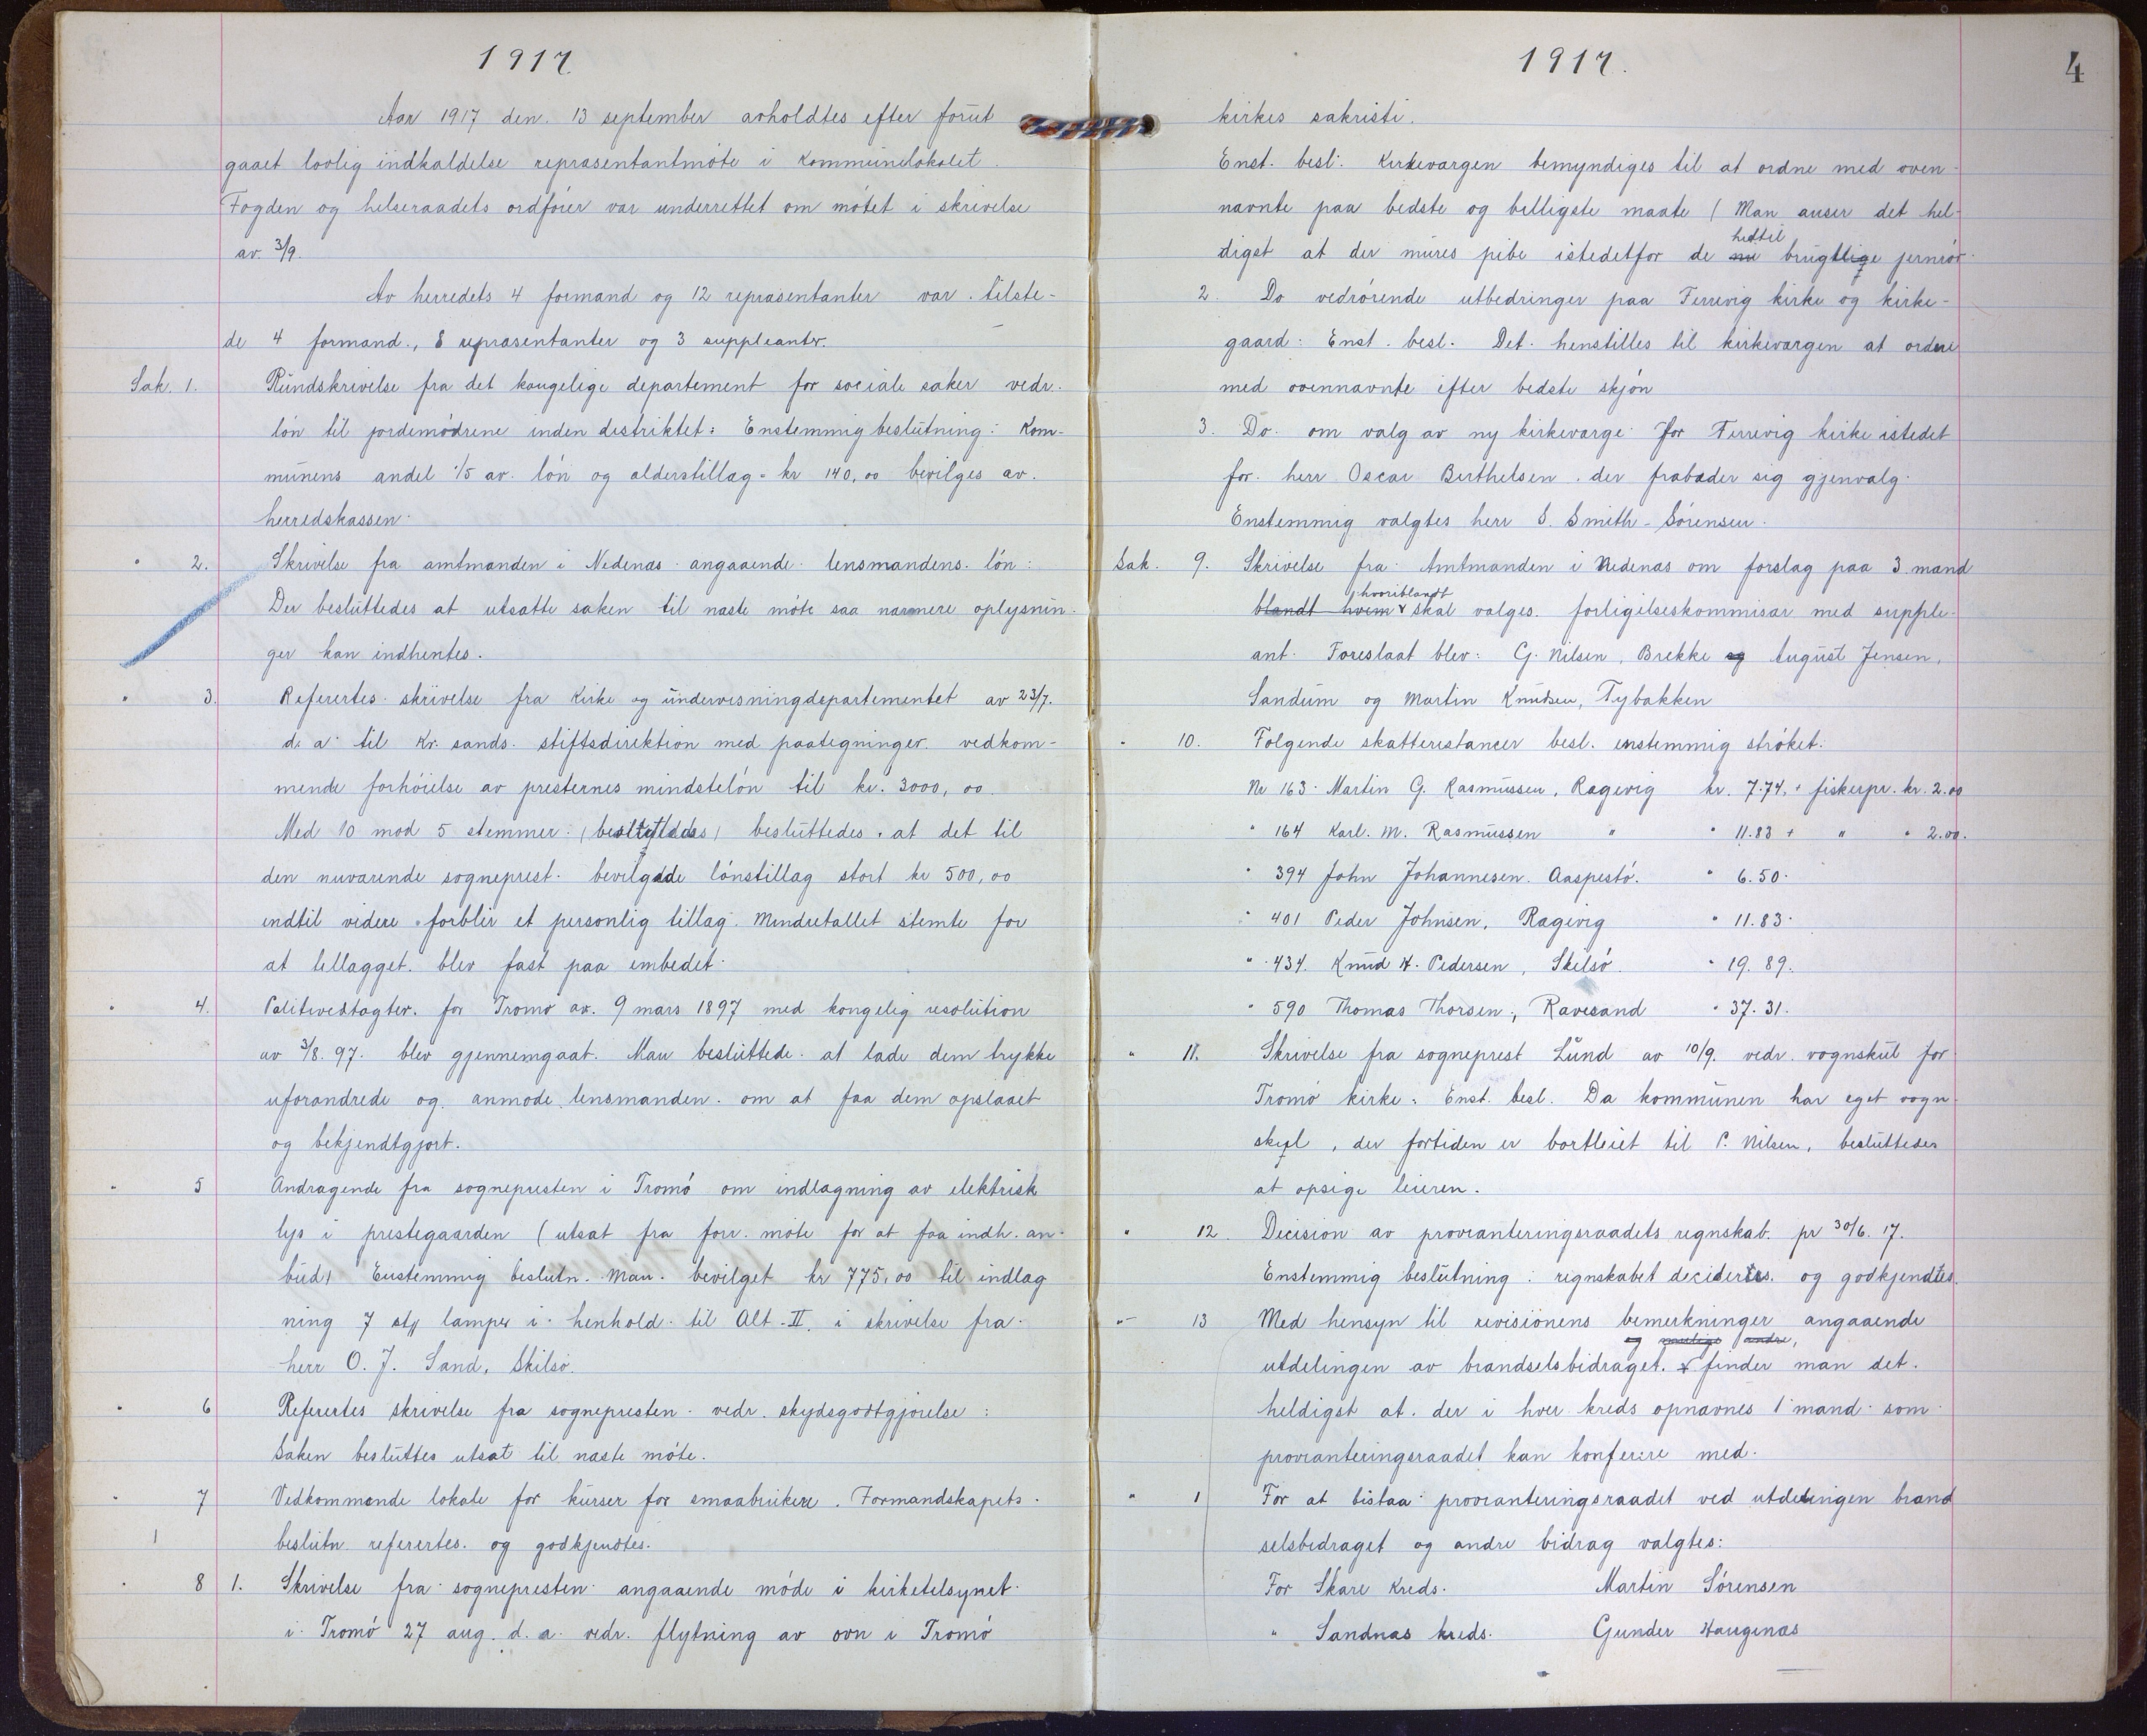 1917
Aar 1917 den. 13 september avholdtes efter forut
gaaet lovlig indkaldelse repræsentantmöte i Kommunelokalet.
Fogden og helseraadets ordförer var underrettet om mötet i skrivelse
av. 3/9.
Av herredets 4 formænd og 12 repræsentanter var tilste-
de 4 formænd., 8 repræsentanter og 3 suppleanter.
Sak. 1. Rundskrivelse fra det kongelige departement for sociale saker vedr.
lön til jordemödrene inden distriktet: Enstemmig beslutning: Kom-
munens andel 1/5 av. lön og alderstillæg = kr 140,00 bevilges av.
herredskassen.
" 2. Skrivelse fra amtmanden i Nedenæs angaaende lensmandens. lön:
Der besluttedes at utsætte saken til næste möte saa nærmere oplysnin-
ger kan indhentes.
" 3. Referertes skrivelse fra Kirke og undervisningdepartementet av 23/7.
d. a. til Kr. sands. stiftsdirektion med paategninger. vedkom-
mende forhöielse av presternes mindstelön til kr. 3000,00.
Med 10 mod 5 stemmer. (besluttedes) besluttedes. at det til
den nuværende sogneprest. bevilgede lönstillæg stort kr 500,00
indtil videre forblir et personlig tillæg. Mindretallet stemte for
at tillægget. blev fast paa embedet.
" 4. Politivedtægter. for Tromö av. 9 mars 1897 med kongelig resolution
av 3/8. 97. blev gjennemgaat. Man besluttede. at lade dem trykke
uforandrede og. anmode lensmanden. om at faa dem opslaaet
og bekjendtgjort.
" 5 Andragende fra sognepresten i Tromö om indlægning av elektrisk
lys i prestegaarden (utsat fra forr. möte for at faa indh. an-
bud) Enstemmig beslutn. Man. bevilget kr 775,00 til indlæg
ning 7 stk lamper i henhold. til Alt. II. i skrivelse fra
herr O. J. Sand, Skilsö.
" 6 Referertes skrivelse fra sognepresten. vedr. skydsgodtgjörelse:
Saken besluttes utsat til næste möte.
" 7 Vedkommende lokale for kurser for smaabrukere. Formandskapets
1 beslutn referertes. og godkjendtes.
" 8 1. Skrivelse fra sognepresten angaaende möde i kirketilsynet
i Tromö 27 aug. d. a. vedr. flytning av ovn i Tromö
1917.
4
kirkes sakristi.
Enst. besl. Kirkeværgen bemyndiges til at ordne med oven-
nævnte paa bedste og billigste maate (Man anser det hel-
hidtil
digst at der mures pibe istedetfor de nu brugtlige jernrör
2. Do vedrörende utbedringer paa Færevig kirke og kirke-
gaard: Enst. besl. Det. henstilles til kirkeværgen at ordne
med ovennævnte efter bedste skjön
3. Do. om valg av ny kirkeværge for Færevig kirke istedet
for. herr Oscar Berthelsen. der frabæder sig gjenvalg.
Enstemmig valgtes herr S. Smith-Sörensen.
Sak. 9. Skrivelse fra Amtmanden i Nedenæs om forslag paa 3 mænd
hvoriblandt
blandt hvem skal vælges. forligelseskommisær med supple-
ant. Foreslaat blev: G. Nilsen, Brekke og August Jensen,
Sandum og Martin Knudsen, Tybakken
" 10. Fölgende skatterestancer besl. enstemmig ströket:
Nr 163 Martin G. Rasmussen, Rægevig kr. 7.74. + fiskerpr. kr. 2.00
" 164 Karl. M. Rasmussen " " 11.83 + " " 2.00.
" 394 John Johannesen. Aaspestö. " 6.50.
" 401 Peder Johnsen, Rægevig " 11.83.
" 434. Knud H. Pedersen, Skilsö. " 19.89.
" 590 Thomas Thorsen., Revesand " 37.31.
" 11. Skrivelse fra sogneprest Lund av 10/9. vedr. vognskul for
Tromö kirke: Enst. besl. Da kommunen har eget vogn-
skjul, der fortiden er bortleiet til P. Nilsen, besluttedes
at opsige leieren.
" 12. Decision av provianteringsraadets regnskab. pr 30/6. 17.
Enstemmig beslutning: regnskabet decidertes. og godkjendtes.
" 13 Med hensyn til revisionens bemerkninger angaaende
og mulige andre,
utdelingen av brændselsbidraget. finder man det.
heldigst at. der i hver kreds opnævnes 1 mand som
provianteringsraadet kan konferere med.
" 1 For at bistaa provianteringsraadet ved utdelingen brænd
selsbidraget og andre bidrag valgtes:
For Skare Kreds. Martin Sörensen
" Sandnæs kreds. Gunder Haugenæs